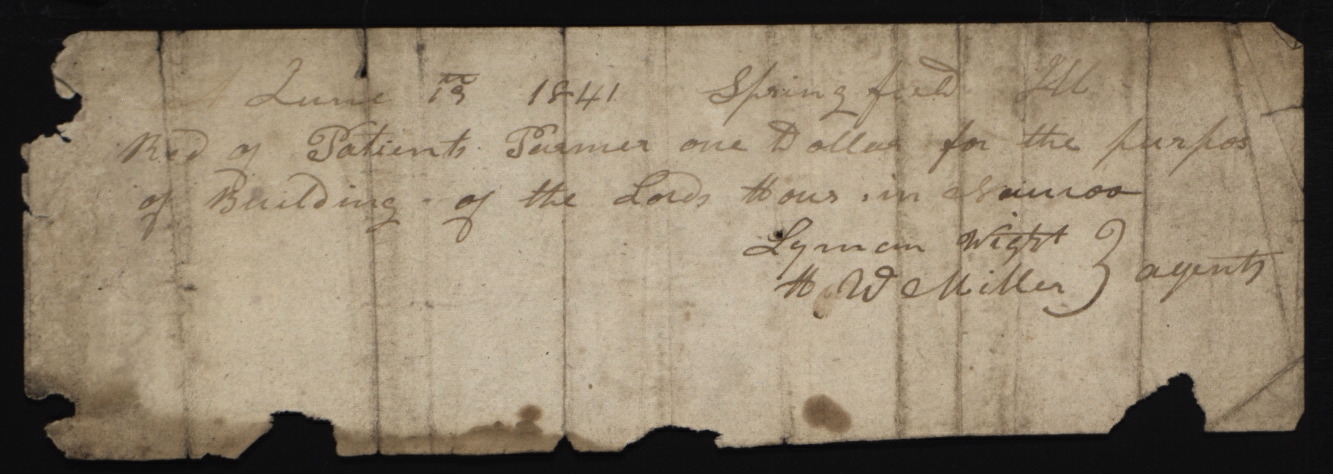 June 13th 1841 Springfield Ill
Recd of Patients Parmer one Dollar for the purpos
of Building of the Lords Hous in Nauvoo
Lyman Wight
H W Miller } agents